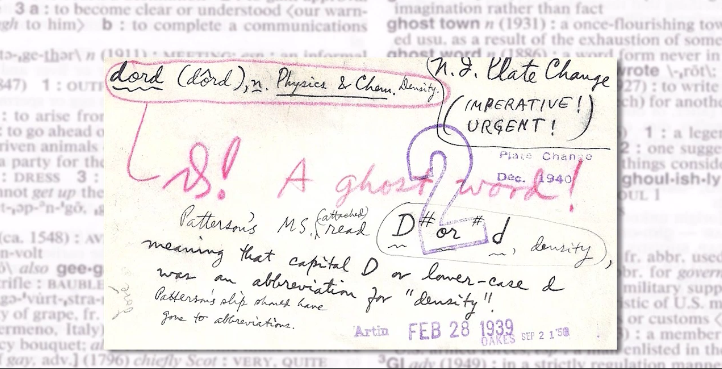 3 a : to become clear or understood ⟨our warn-
b : to complete a communications
imagination rather than fact
ghost town n (1931) : a once-flourishing tow
ed usu. as a result of the exhaustion of some
ghost word n
form never in
dord (dôrd), n. Physics & Chem. Density.
N.I. Plate Change
(IMPERATIVE!
URGENT!)
Plate Change
Dec. 1940
2
A ghost word!
Patterson's MS. (attached) read D # or # d, density,
meaning that capital D or lower-case d
was an abbreviation for "density"!
Patterson's slip should have
gone to abbreviations.
Artin FEB 28 1939
OAKES SEP 21
1 : OUT
: to arise from
to go ahead o
riven animals
a party for the
: DRESS 3 :
not get up the
[ca. 1548) : AV
n-volt
also gee-g
rifle : BAUBLE
y of grape, fr.
ermeno, Italy
cy bouquet; al
gay, adv.] (1796) chiefly Scot : VERY, QUITE
: to writ
ch) for anoth
1 : a lege
2 : one sugge
things conside
ghoul-ish-ly
fr. abbr. used
br. for govern
military supp
stic of U.S. m
or customs ⟨
: a member
enlisted in th
³GI adv (1949) : in a strictly regulation manne